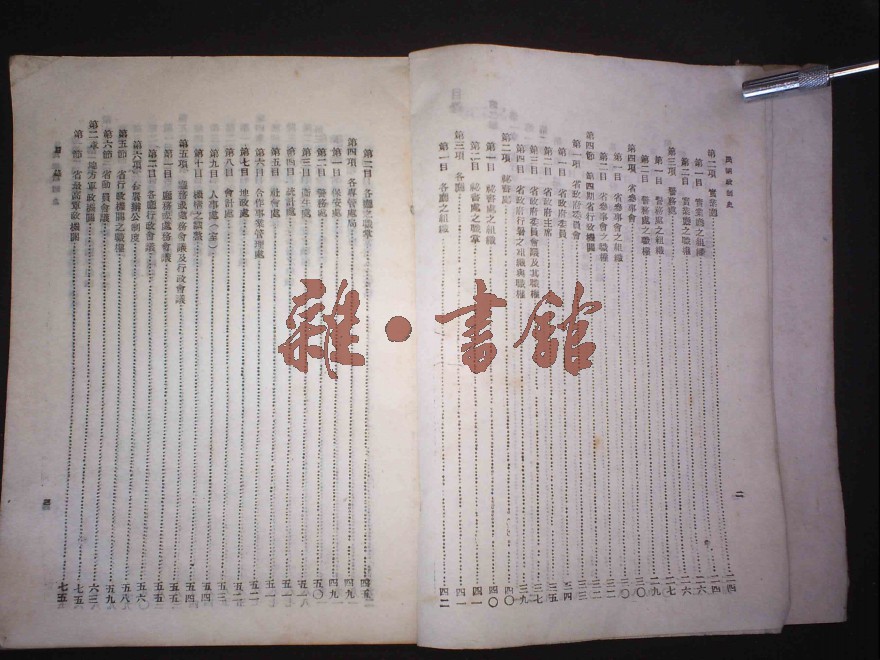 民國政制史
第二項 實業廳 二四
第一目 實業廳之組織 二六
第二目 實業廳之職權 二六
第三項 警務處 二七
第一目 警務處之組織
第二目 警務處之職權 二九
第四項 省參事會 三〇
第一目 省參事會之組織 三〇
第二目 省參事會之職權 三二
第四節 第四期省行政機關 三三
第一項 省政府委員會
第一目 省政府委員
第二目 省政府主席 三五
第三目 省政府委員會議及其職權 三七
第四目 省政府行署之組織與職權 三九
第二項 祕書處 四〇
第一目 祕書處之組織 四〇
第二目 祕書處之職掌 四一
第三項 各廳 四一
第一目 各廳之組織 四二
二
第二目 各廳之職掌
第四項 各專管處局 四九
第一目 保安處 四九
第二目 警務處 五〇
第三目 衛生處 五一
第四目 統計處 五一
第五目 社會處 五一
第六目 合作事業管理處 五二
第七目 地政處 五二
第八目 會計處 五三
第九目 人事處(室) 五四
第十目 機構之調整 五四
第五項 廳務或處務會議及行政會議 五五
第一目 廳務或處務會議 五五
第二目 各廳行政會議 五五
第六項 合署辦公制度 五六
第五節 省行政機關之職權 五九
第六節 省動員會議
第二章 地方軍政機關 六三
第一節 省最高軍政機關 七五
三
雜·書館